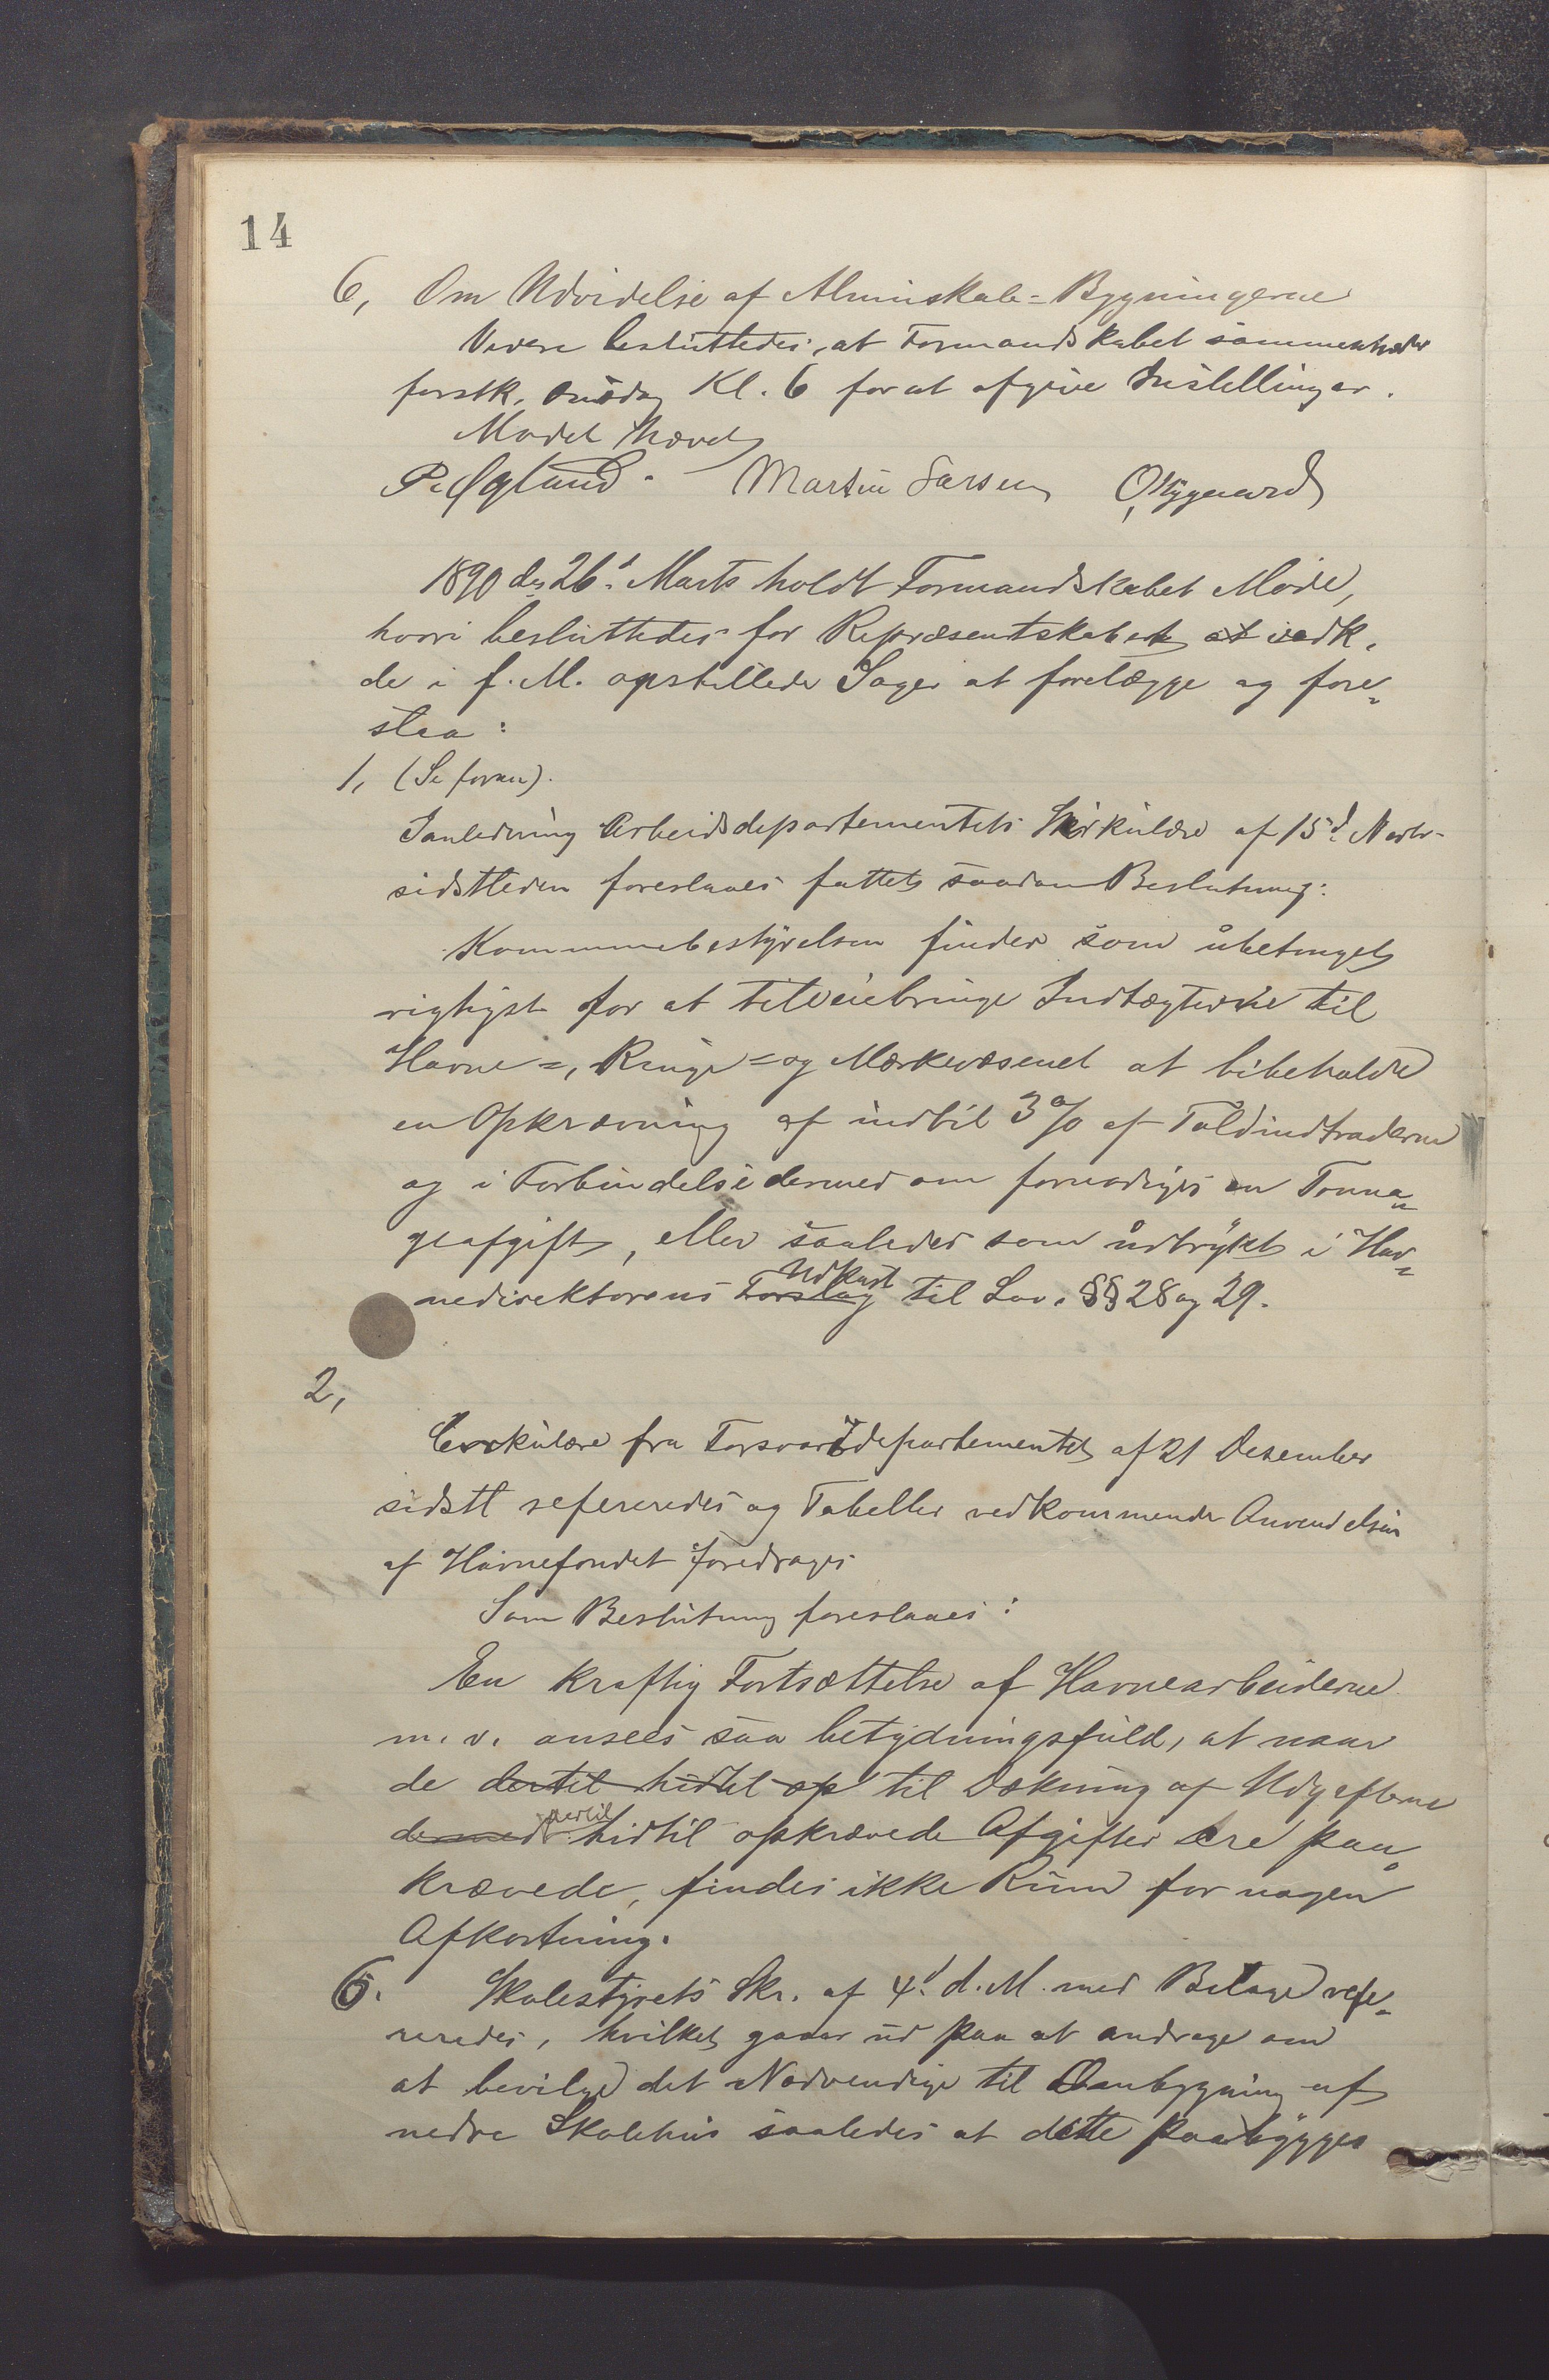 14
6, Om Udvidelse af Almueskole-Bygningerne
Videre besluttedes, at Formandskabet sammentræder
førstk. Onsdag Kl. 6 for at afgive Indstillinger.
Mødet hævet
P. Øglænd. Martin Larsen O Nygaard
1890 den 26d. Marts holdt Formandskabet Møde,
hvori besluttedes for Repræsentskabet at vedk.
de i f. M. opstillede Sager at forelægge og fore=
slaa:
1, (Se foran).
I anledning Arbeidsdepartementets Cirkulære af 15d. Novbr.
sidstleden foreslaaes fattet saadan Beslutning:
Kommunebestyrelsen finder som ubetinget
rigtigst for at tilveiebringe Indtægterne til
Havne=, Ringe= og Mærkevæsenet at bibeholde
en Opkrævning af indtil 3 % af Toldindtraderne
og i Forbindelse dermed om fornødiges en Tonna=
geafgift, eller saaledes som udtrykt i Hav=
nedirektørens Forslag Udkast til Lov. §§ 28 og 29.
2,
Cirkulære fra Forsvarsdepartementet af 21 Desember
sidstl refereredes og Tabeller vedkommende Anvendelsen
af Havnefondet foredrages
Som Beslutning foreslaaes:
En kraftig Fortsættelse af Havnearbeiderne
m. v. ansees saa betydningsfuld, at naar
de dertil hidtil op til Dækning af Udgifterne
dermed dertil hidtil opkrævede Afgifter ere paa=
krævede, findes ikke Rum for nogen
Afkortning.
6. Skolestyrets Skr. af 4d. d. M. med Bilage refe=
reredes, hvilket gaar ud paa at andrage om
at bevilge det Nødvendige til Ombygning af
nedre Skolehus saaledes at dette paabygges